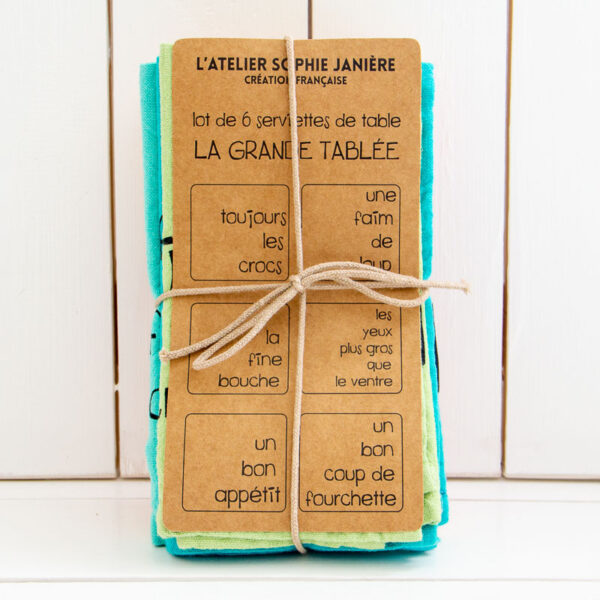 L'ATELIER SOPHIE JANIÈRE
CRÉATION FRANÇAISE
lot de 6 serviettes de table
LA GRANDE TABLÉE
toujours
les
crocs
une
faim
de
loup
la
fine
bouche
les
yeux
plus gros
que
le ventre
un
bon
appétit
un
bon
coup de
fourchette